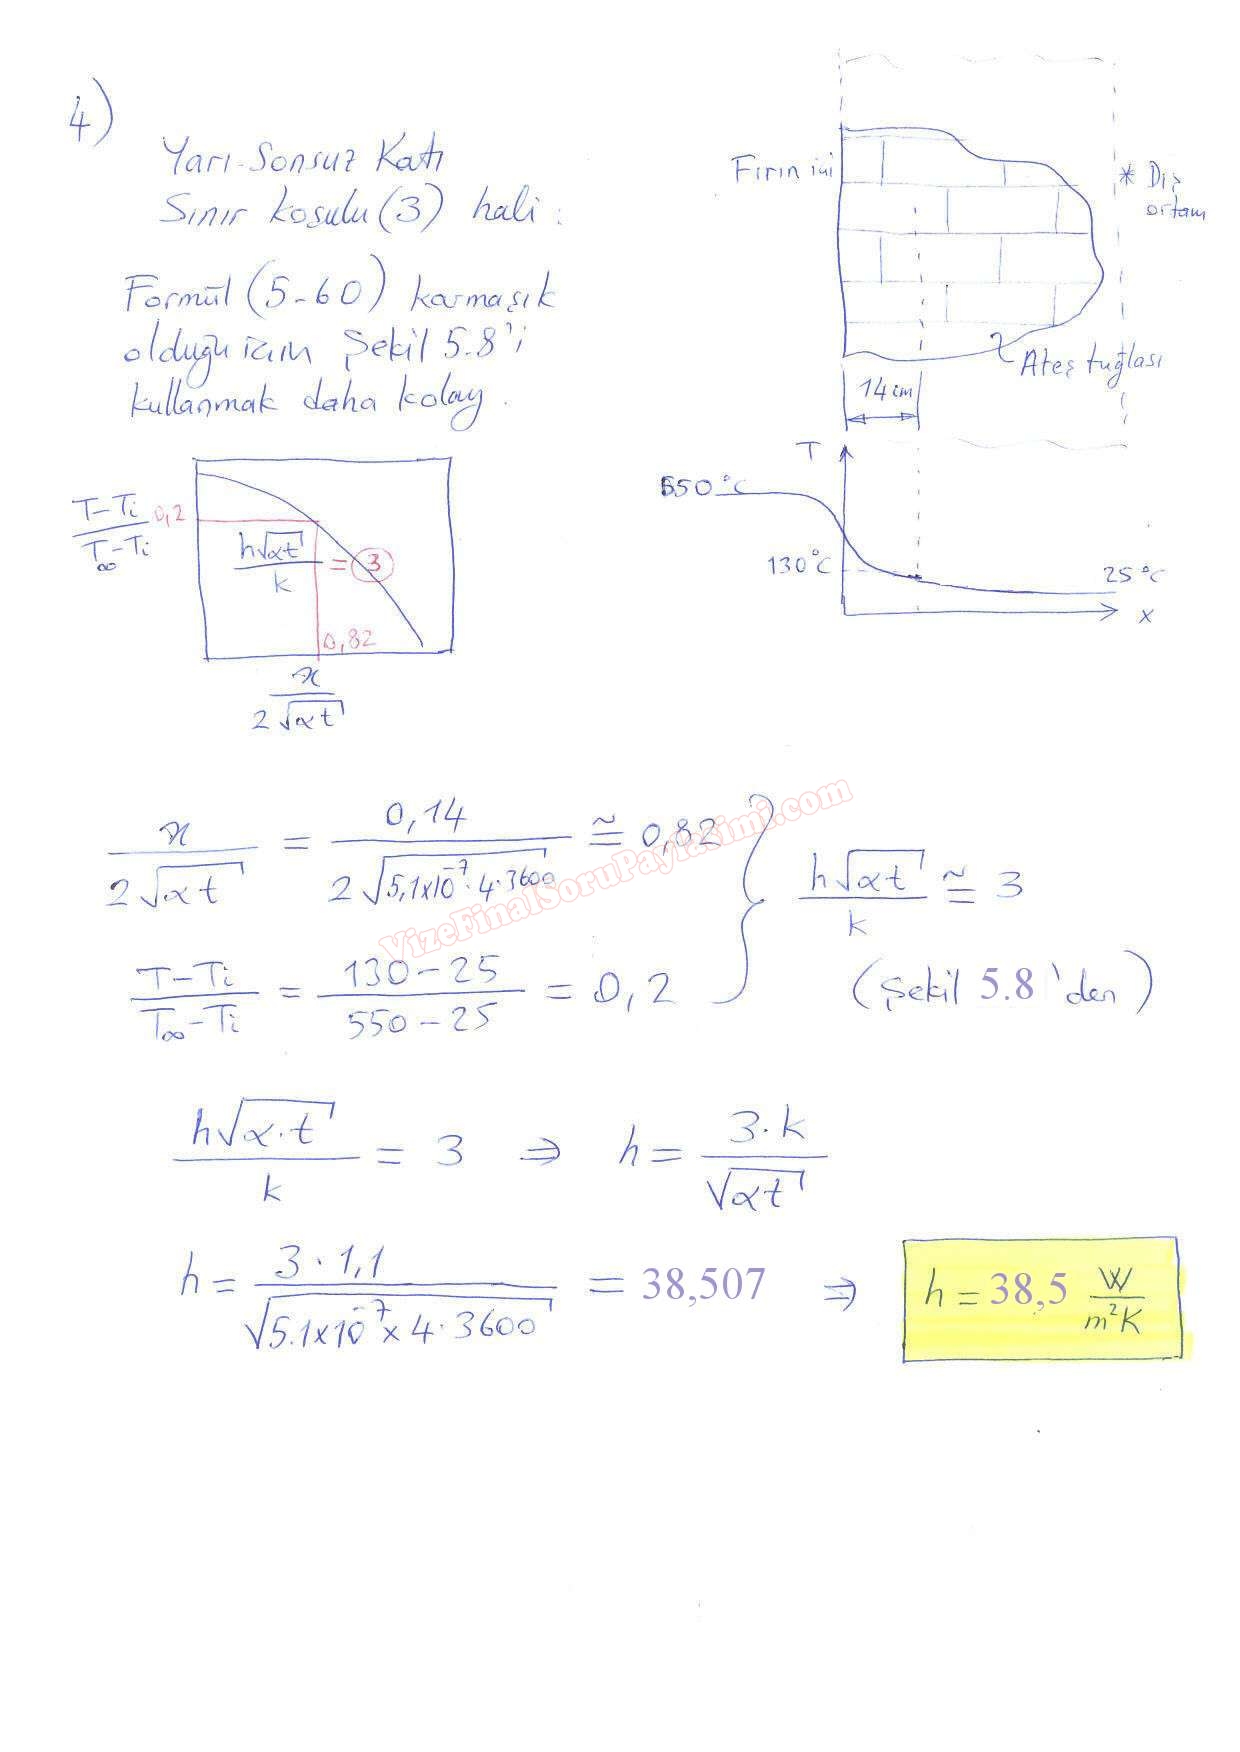 4)
Yarı-Sonsuz Katı
Sınır koşulu (3) hali :
Formül (5-60) karmaşık
olduğu için Şekil 5.8'i
kullanmak daha kolay.
Fırın içi
* Dış
ortam
Ateş tuğlası
14 cm
T
550°C
130°C
25°C
x
T-Ti / T∞-Ti
0,2
h√αt / k = 3
0,82
x / 2√αt
x / 2√αt = 0,14 / 2√5,1x10⁻⁷.4.3600 ≅ 0,82
h√αt / k ≅ 3
T-Ti / T∞-Ti = 130-25 / 550-25 = 0,2
(Şekil 5.8'den)
VizeFinalSoruPaylasimi.com
h√α.t / k = 3 ⇒ h = 3.k / √αt
h = 3.1,1 / √5.1x10⁻⁷x4.3600 = 38,507 ⇒ h = 38,5 W/m²K